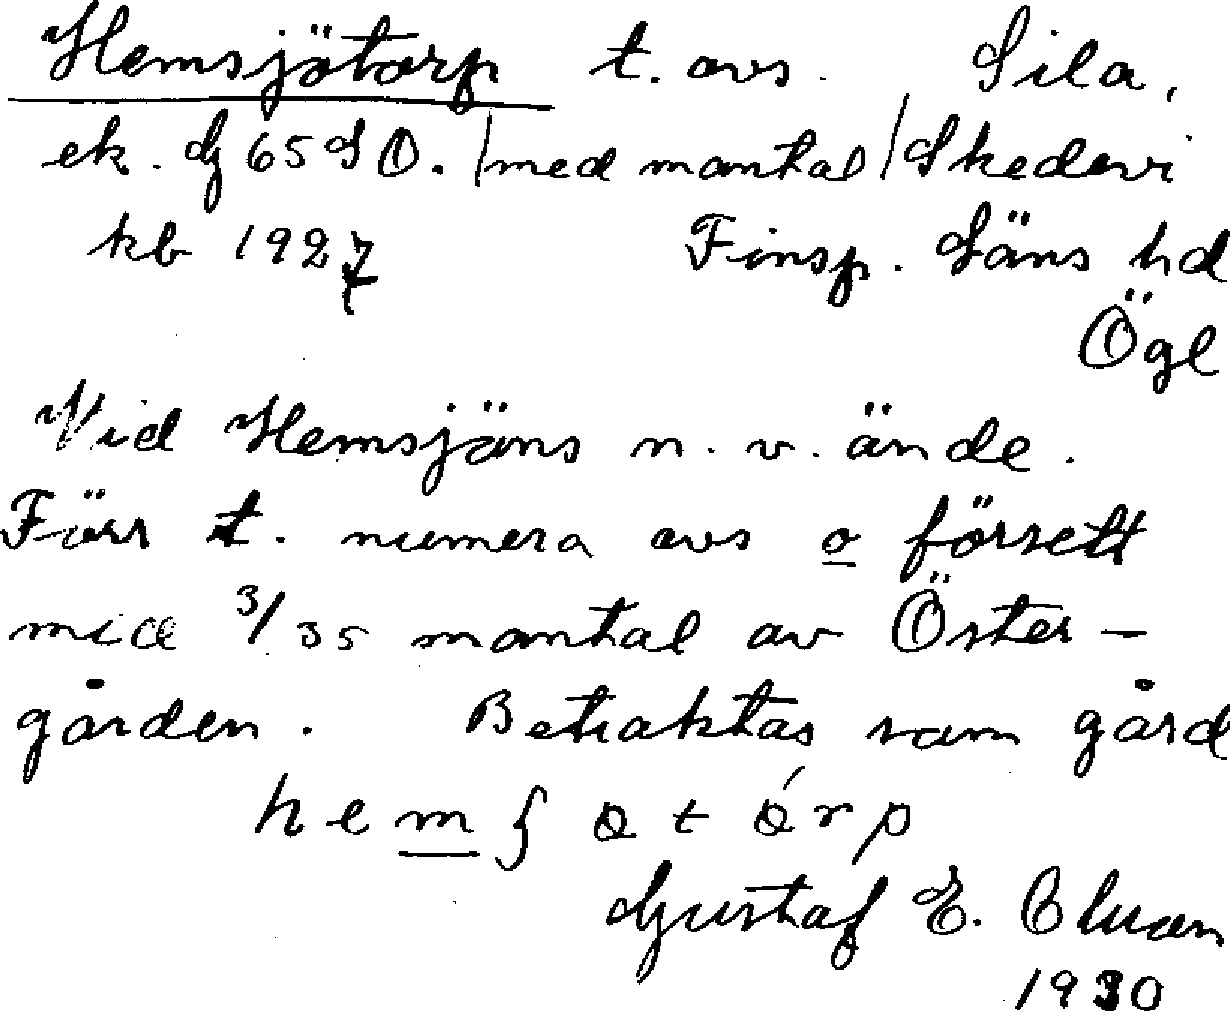 Hemsjötorp t. avs. Sila,
ek. G 65 SO. /med mantal/ Skedevi
kb 1927 Finsp. läns hd
Ögl
Vid Hemsjöns n. v. ände.
Förr t. numera avs o försett
med 3/35 mantal av Öster-
gården. Betraktas som gård
hem
Gustaf E. Bluan
1930